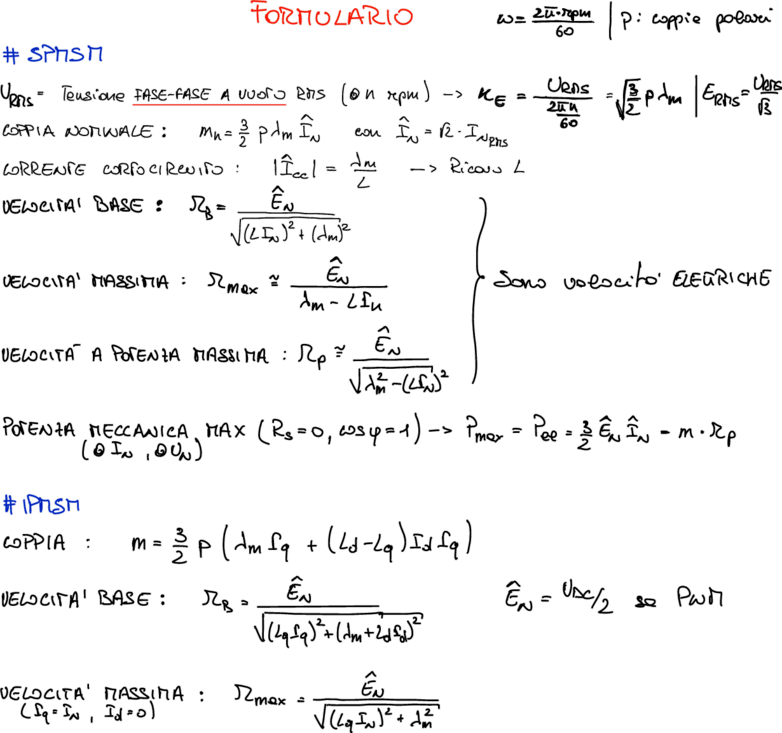 FORMULARIO
ω = 2π·rpm/60 | p: coppie polari
# SPMSM
U_RMS = Tensione FASE-FASE A VUOTO RMS (@ n rpm) -> K_E = U_RMS/(2πn/60) = √(3/2) p λm | E_RMS = U_RMS/√3
COPPIA NOMINALE : m_n = 3/2 p λm Î_N con Î_N = √2 · I_N_RMS
CORRENTE CORTOCIRCUITO : |Î_cc| = λm/L -> Ricavo L
VELOCITA' BASE : Ω_B = Ê_N/√((L I_N)² + (λm)²)
VELOCITA' MASSIMA : Ω_max ≅ Ê_N/(λm - L I_N)
Sono velocità ELETTRICHE
VELOCITA' A POTENZA MASSIMA : Ω_P ≅ Ê_N/√(λm² - (L I_N)²)
POTENZA MECCANICA MAX (R_s = 0, cosφ = 1) -> P_max = P_ee = 3/2 Ê_N Î_N = m · Ω_P
(@ I_N , @ U_N)
# IPMSM
COPPIA : m = 3/2 p (λm I_q + (L_d - L_q) I_d I_q)
VELOCITA' BASE : Ω_B = Ê_N/√((L_q I_q)² + (λm + L_d I_d)²)
Ê_N = U_DC/2 se PWM
VELOCITA' MASSIMA : Ω_max = Ê_N/√((L_q I_N)² + λm²)
(I_q = I_N , I_d = 0)